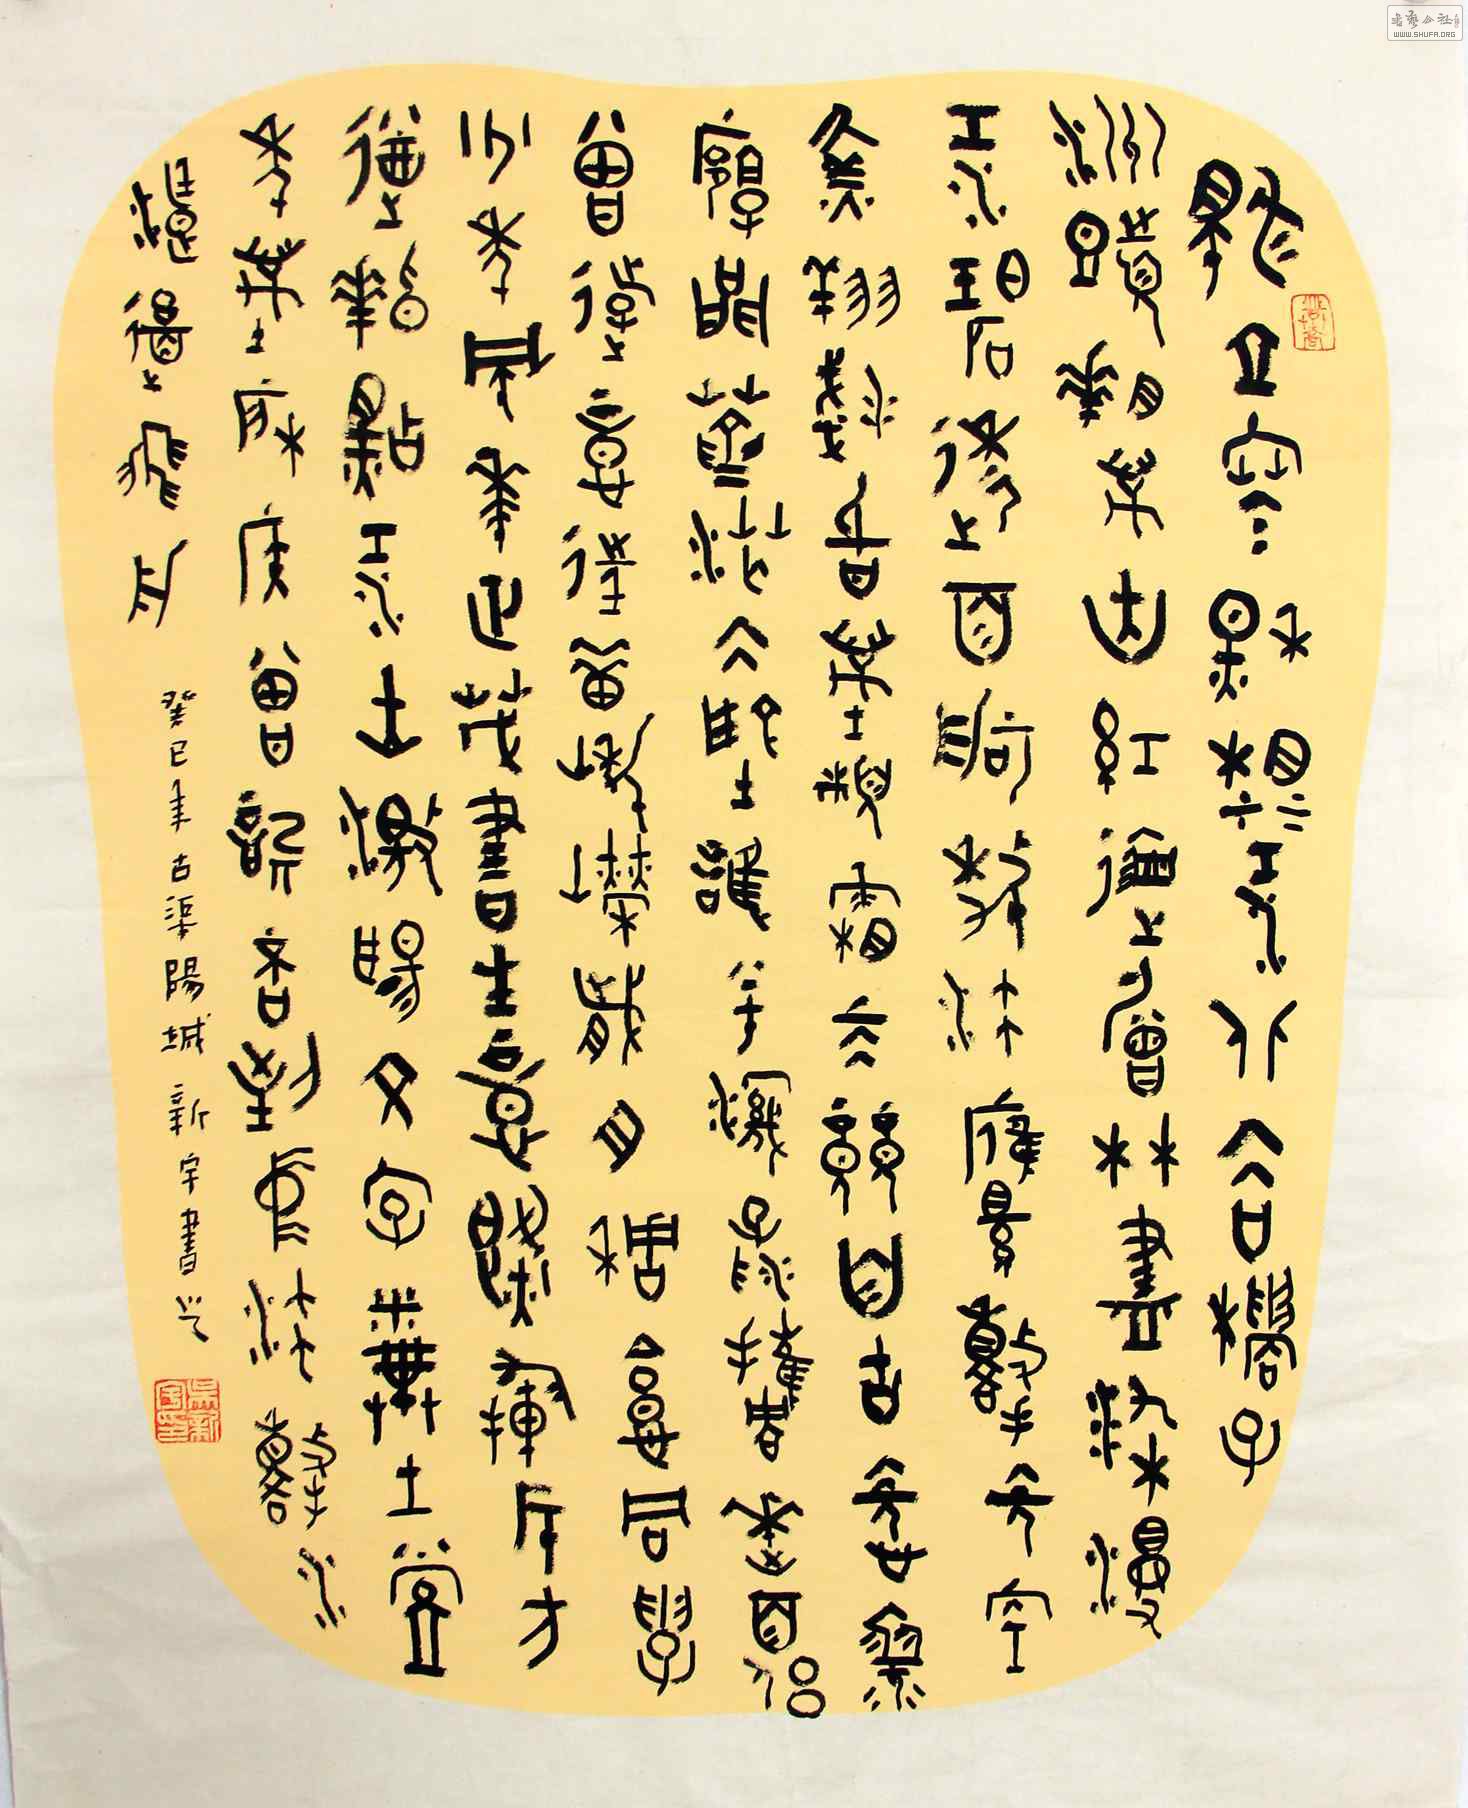 獨立寒秋湘江北去橘子
洲頭看萬山紅遍層林盡染漫
江碧透百舸爭流鷹擊長空
魚翔淺底萬類霜天競自由悵寥
廓問蒼茫大地誰主沉浮攜來百侶
曾遊憶往昔崢嶸歲月稠恰同學
少年風華正茂書生意氣揮斥方
遒指點江山激揚文字糞土當
年萬戶侯曾記否到中流擊水
浪遏飛舟
癸巳年古渠陽城新宇書
吳新宇印
WWW.SHUFA.ORG